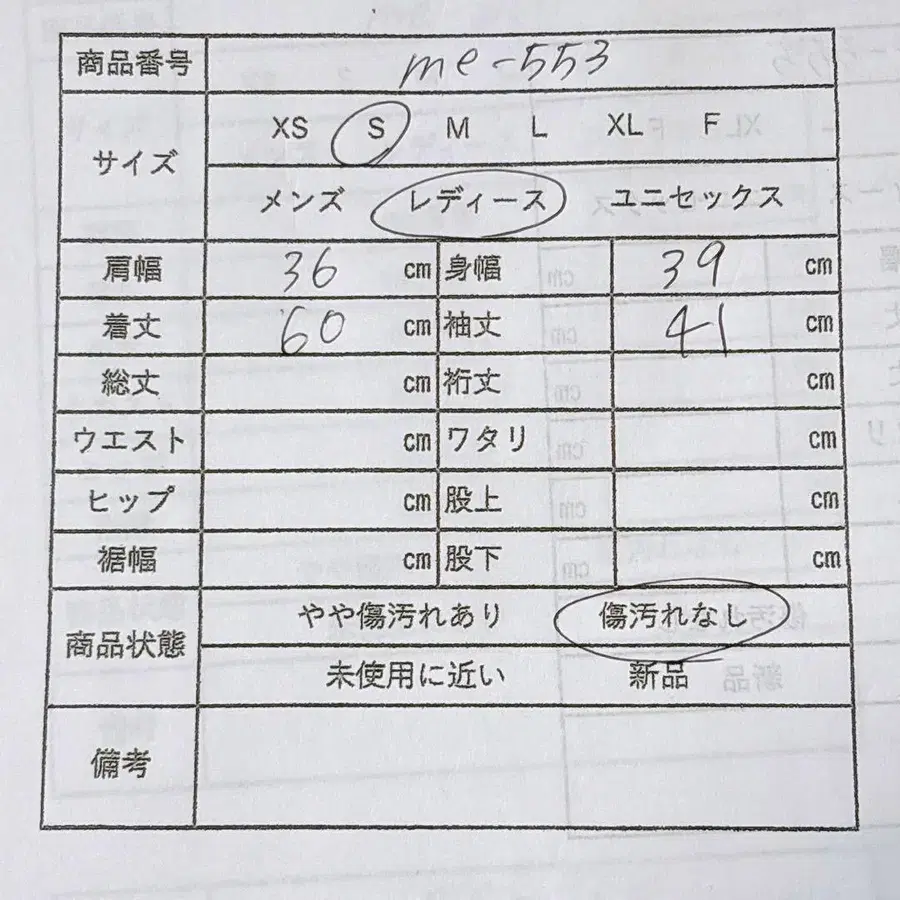 商品番号 me-553
XS S M L XL F
サイズ
メンズ レディース ユニセックス
肩幅 36 cm 身幅 39 cm
着丈 60 cm 袖丈 41 cm
総丈 cm 裄丈 cm
ウエスト cm ワタリ cm
ヒップ cm 股上 cm
裾幅 cm 股下 cm
やや傷汚れあり 傷汚れなし
商品状態
未使用に近い 新品
備考